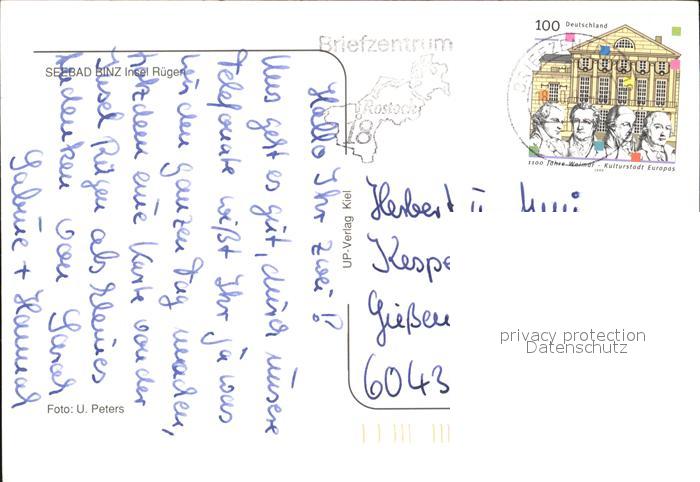 SEEBAD BINZ Insel Rügen
Hallo Ihr zwei!?
Uns geht es gut, durch unsere
Telefonate wißt Ihr ja was
wir den ganzen Tag machen,
trotzdem eine Karte von der
Insel Rügen als kleines
Andenken von Sarah
Sabine + Hannah
Foto: U. Peters
UP-Verlag Kiel
Briefzentrum
Rostock
18
BRIEFZEN
18
100 Deutschland
1100 Jahre Weimar - Kulturstadt Europas
1999
Herbert u.
Kespe
Gießen
6043
privacy protection
Datenschutz